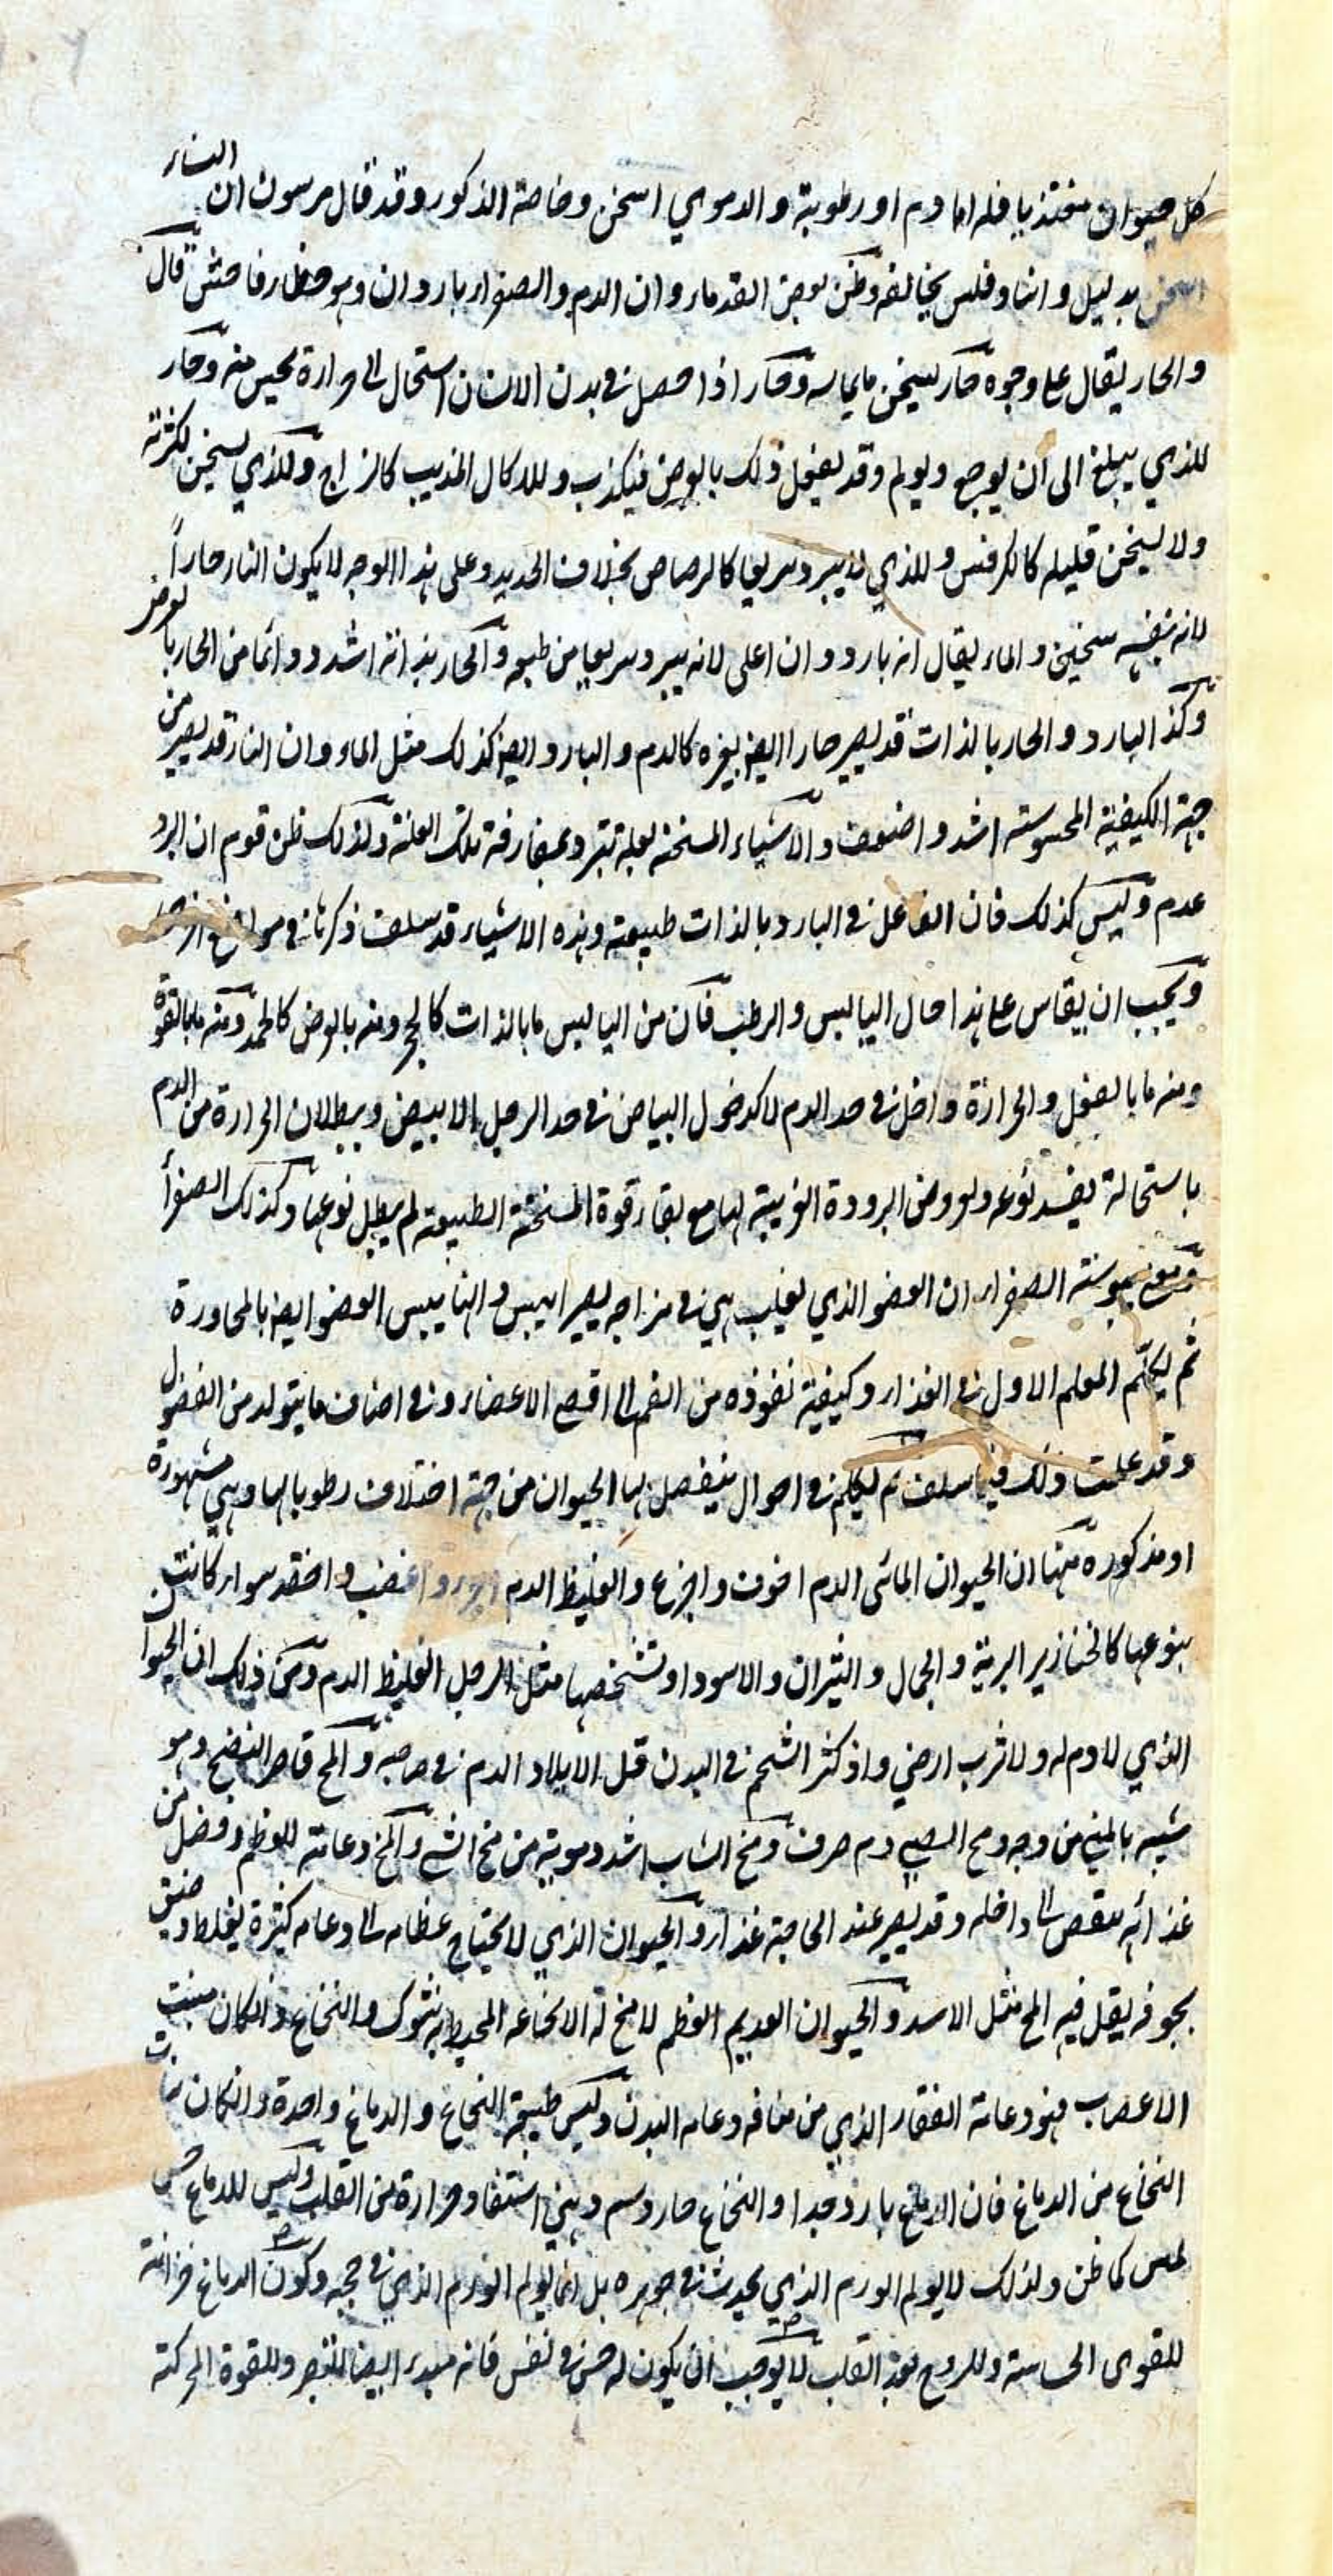 كل حيوان مغتذيا فله اما دم او رطوبة والدموي اسخن وخاصة الذكور وقد قال مرسون ان النساء
اسخن بدليل وانبادقلس يخالفه وظن بعض القدماء وان الدم والصفراء باردان وهو خطاء فاحش قال
والحار يقال على وجوه حار يسخن مايماسه وحار اذا حصل في بدن الانسان استحال الى حرارة يحس منه وحار
للذي يبلغ الى ان يوجع ويولم وقد يفعل ذلك بالعرض فيكذب وللاكال المذيب كالزاج وللذي يسخن لكثرته
ولا يسخن قليله كالكرفس وللذي يبرد سريعا كالرصاص بخلاف الحديد وعلى هذا الوجه لا يكون النار حاراً
لانه بنفسه سخين والماء يقال انه بارد وان اغلى لانه يبرد سريعا من طبعه والحار بذاته اشد ودائما من الحار بالعرض
وكذا البارد والحار بالذات قد يصير حارا ايضا بغيره كالدم والبارد ايضا كذلك مثل الماء وان النار قد يصير من
جهة الكيفية المحسوسة اشد واضعف والاشياء المسخنة لعلة تبرد بمفارقة تلك العلة ولذلك ظن قوم ان البرد
عدم وليس كذلك فان الفاعل في البارد بالذات طبيعة وهذه الاشياء قد سلف ذكرنا في مواضع اخرى
ويجب ان يقاس على هذا حال اليابس والرطب فان من اليابس ما بالذات كالحجر ومنه بالعرض كالجمد ومنه ما بالقوة
ومنه ما بالفعل والحرارة داخل في حد الدم لا كدخول البياض في حد الرجل الابيض وببطلان الحرارة من الدم
باستحالة يفسد نوعه ولعروض البرودة الغريبة لها مع بقاء قوة المسخنة الطبيعة لم يبطل نوعها وكذلك الصفرأ
ومعنى يبوسة الصفراء ان العضو الذي يغلب هي في مزاجه يصير ايبس وانها ييبس العضو ايضا بالمجاورة
ثم ليكلّم المعلم الاول في الغذاء وكيفية نفوذه من الفم الى اقصى الاعضاء وفي اصناف ما يتولد من الفضول
وقد علمت ذلك فيما سلف ثم ليكلم في احوال ينفصل بها الحيوان من جهة اختلاف رطوباتها وهي مشهورة
او مذكوره منها ان الحيوان المائى الدم اخوف واجزع والغليظ الدم اجرء واغضب واحقد سواء كانت
بنوعها كالخنازير البرية والجمال والثيران والاسود او تشخصها مثل الرجل الغليظ الدم ومن ذلك ان الحيوان
الذي لا دم له ولا ثرب ارضي واذ كثر الشحم في البدن قل الايلاد الدم في صاحبه والمخ قاصر النضج وهو
شبيه بالمني من وجه ومخ الصبي دم صرف ومخ الشاب اشد دموية من مخ الشيخ والمخ دعامة للعظم وفضل من
غذائه ينقص الى داخله وقد يصير عند الحاجة غذاء والحيوان الذي لا يحتاج عظامه الى دعامه كثيرة يغلظ وضيق
بجوفه يقل فيه المخ مثل الاسد والحيوان العديم العظم لا مخ له الا نخاعه المحيط به شوك والنخاع وان كان منبت
الاعصاب فهو دعامة الفقار الذي من منافعه دعامه البدن وليس طبيعة النخاع والدماغ واحدة وان كان نبات
النخاع من الدماغ فان الدماغ بارد جدا والنخاع حار دسم دهني استفاد حرارة من القلب وليس للدماغ حس
لمس كما ظن ولذلك لا يولم الورم الذي يحدث في جوهره بل انما يولم الورم الذي في حجبه وكون الدماغ خزانة
للقوى الحساسة وللروح بعد القلب لا يوجب ان يكون له حس في نفس فانه مبدء ايضا للبصر وللقوة المحركة